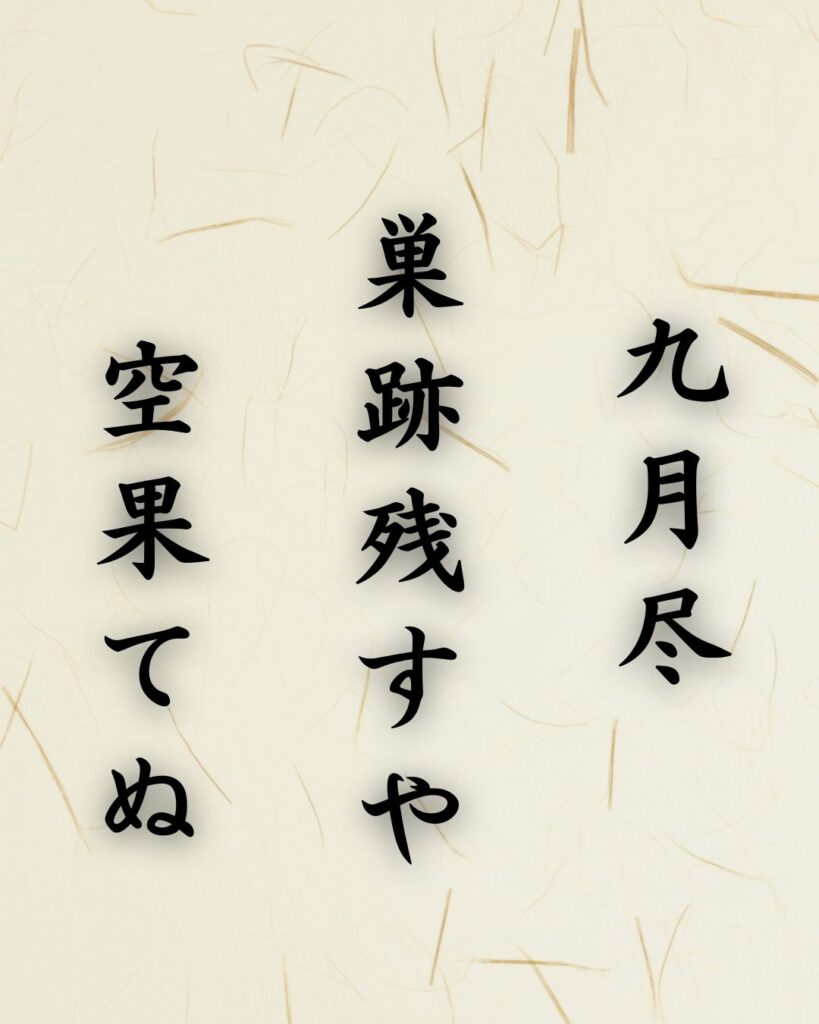 九月尽
巣跡残すや
空果てぬ